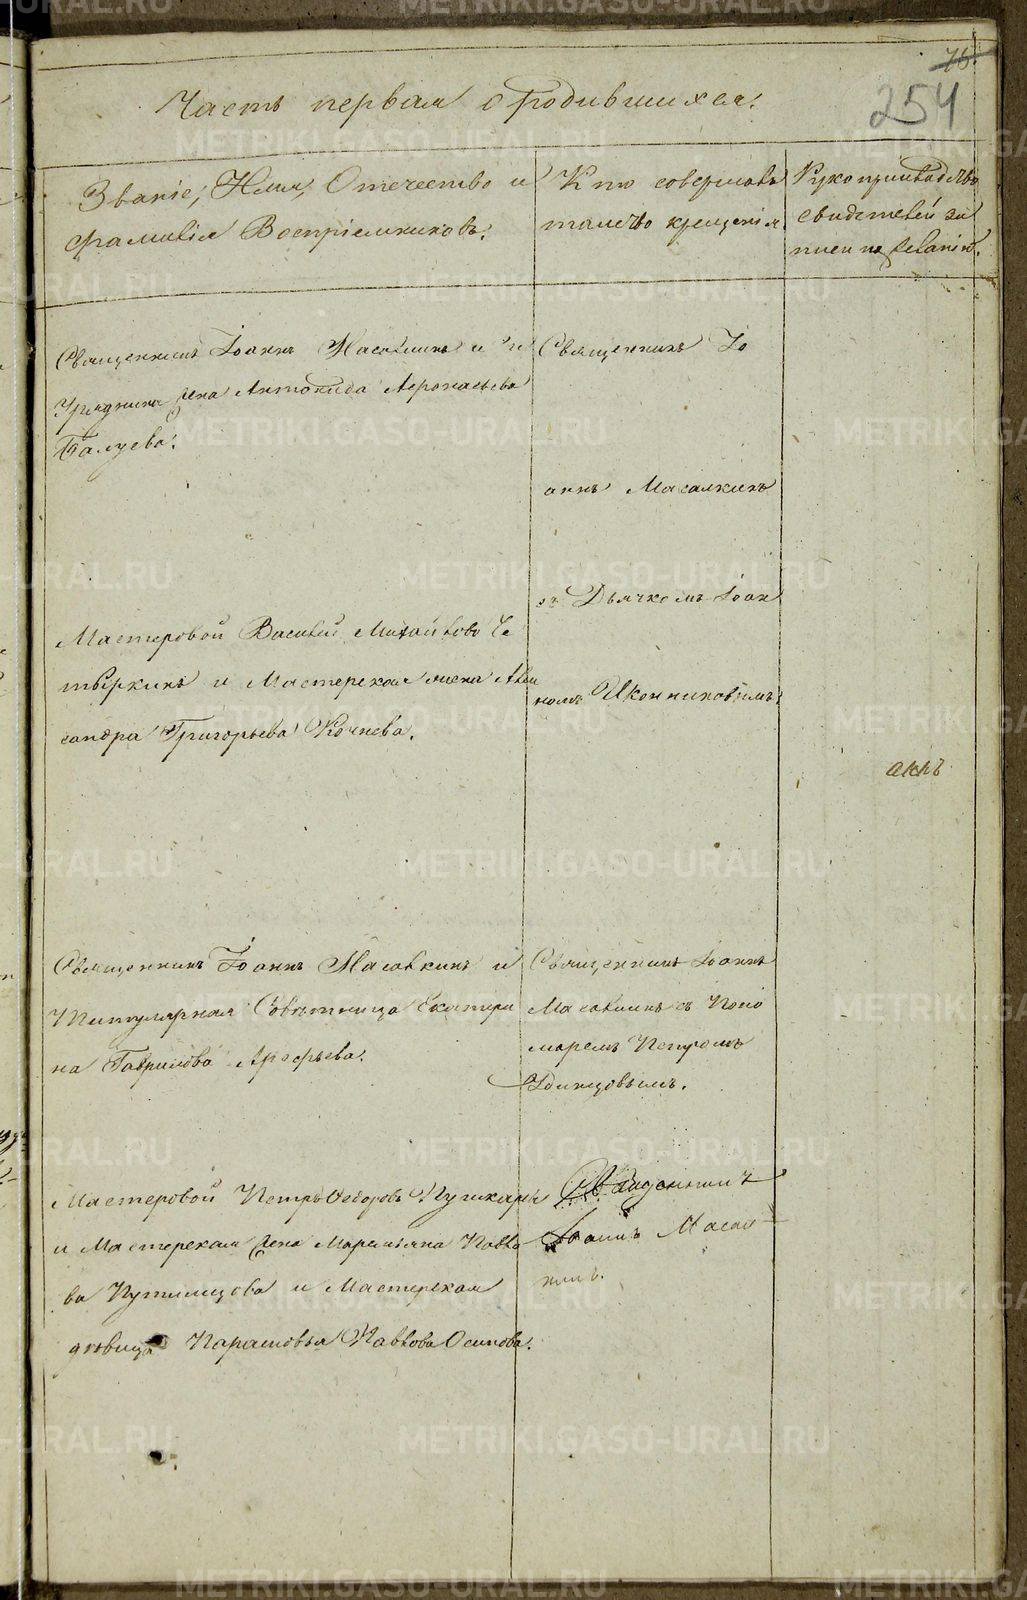 76.
254
Часть первая о родившихся.
Званіе, Имя, Отечество и
фамилія Воспріемниковъ.
Кто совершалъ
таинство крещенія.
Рукоприкладство
свидетелей за
писи по желанію.
Священникъ Іоаннъ Масалкинъ и
Урядника жена Антонида Аѳонасьева
Балуева.
Священникъ Іо
аннъ Масалкинъ
съ Дьячкомъ Іоан
номъ Иконниковымъ.
Мастеровой Василей Михайловъ Че
тыркинъ и Мастерская жена Алек
сандра Григорьева Кочнева.
акнъ
Священникъ Іоаннъ Масалкинъ и
Титулярная Совѣтница Екатери
на Гаврилова Арефьева.
Священникъ Іоаннъ
Масалкинъ съ Поно
маремъ Петромъ
Одинцовымъ.
Мастеровой Петръ Ѳедоровъ Пушкаръ
и Мастерская жена Маремьяна Павло
ва Путилцова и Мастерская
дѣвица Парасковья Павлова Осипова.
Священникъ
Іоаннъ Масал
кинъ.
METRIKI.GASO-URAL.RU